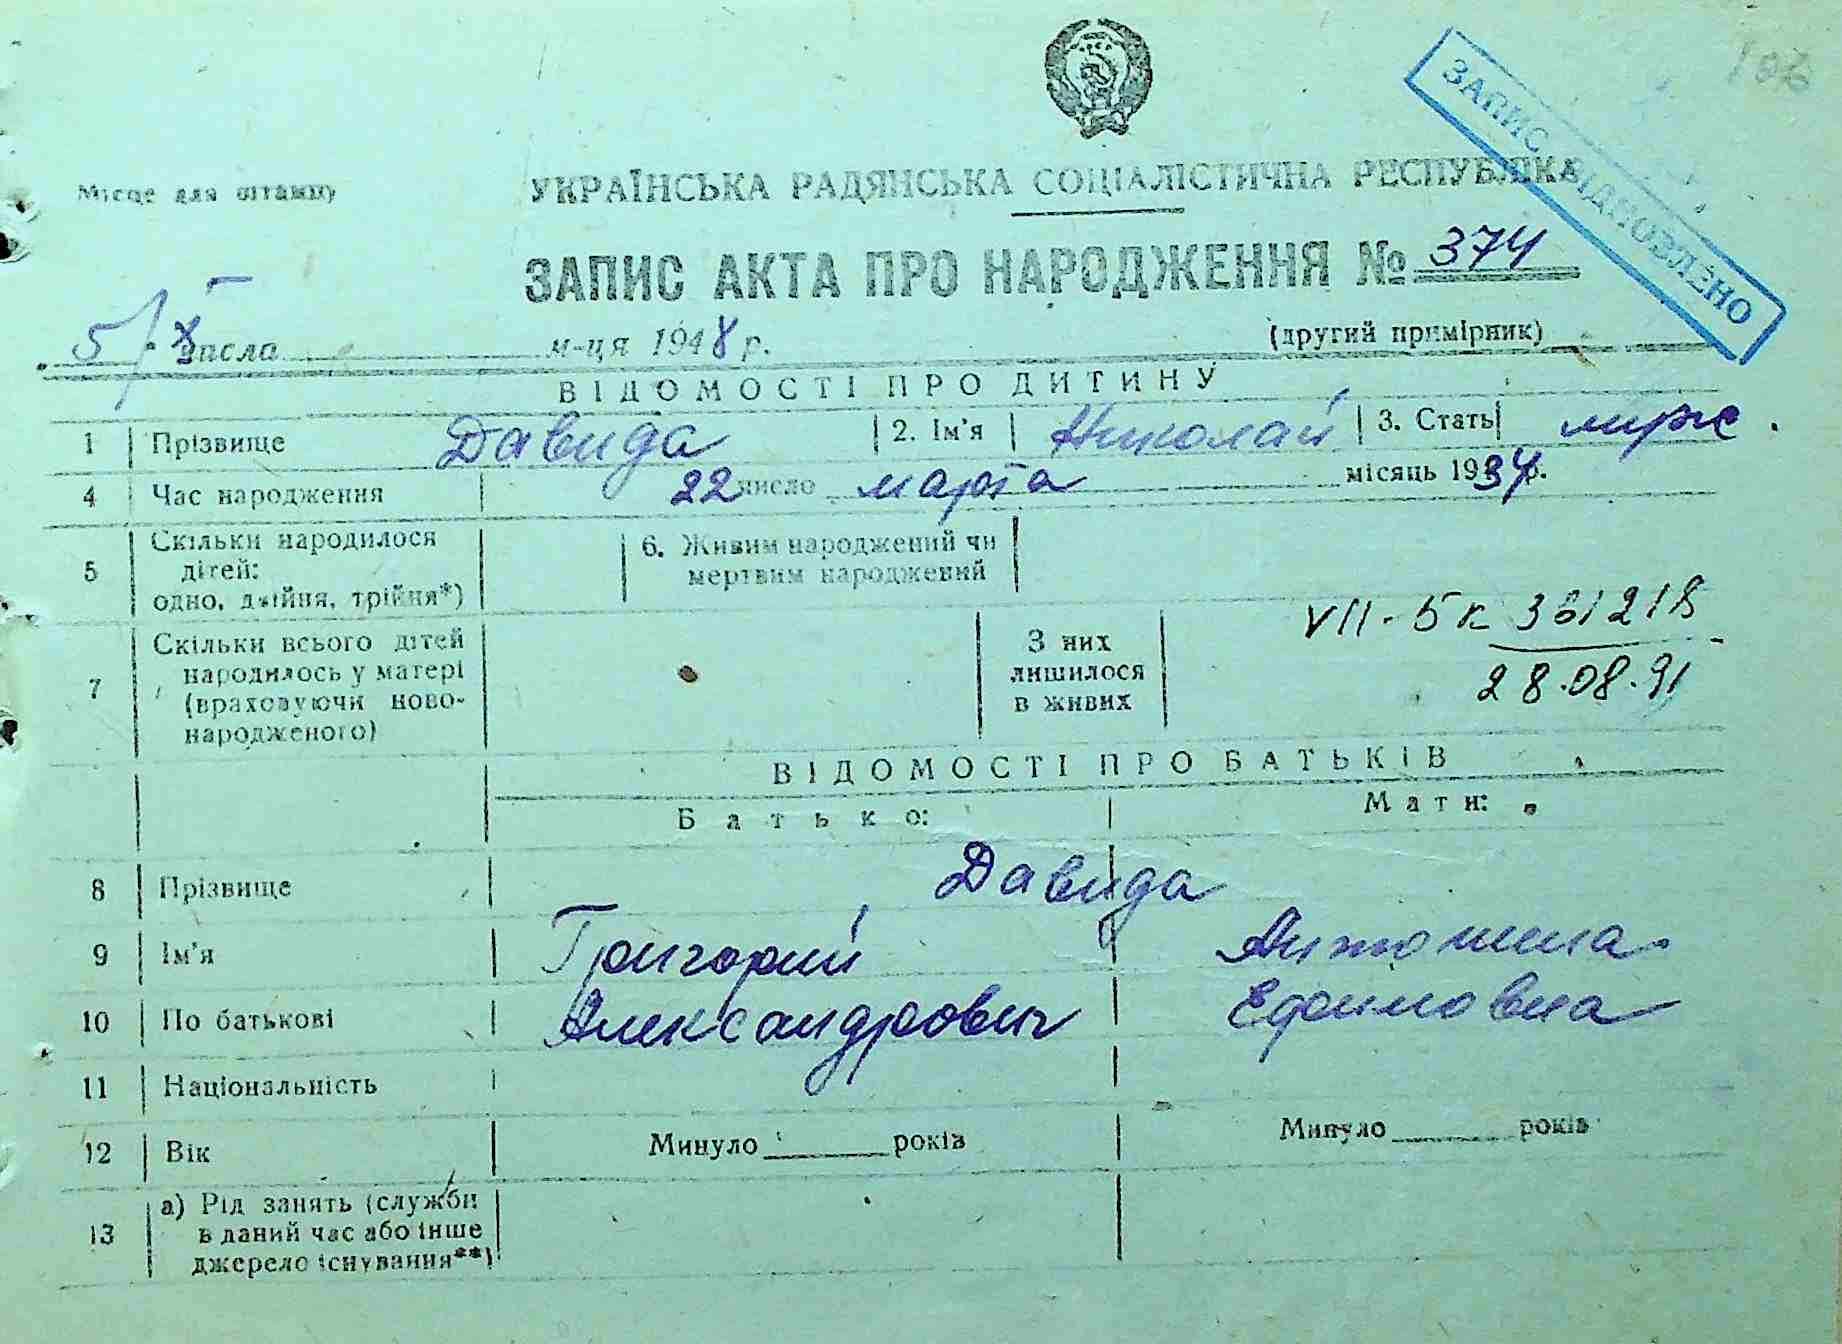 106
ЗАПИС ВІДНОВЛЕНО
Місце для штампу
УКРАЇНСЬКА РАДЯНСЬКА СОЦІАЛІСТИЧНА РЕСПУБЛІКА
ЗАПИС АКТА ПРО НАРОДЖЕННЯ № 374
5/X числа м-ця 1948 р. (другий примірник)
ВІДОМОСТІ ПРО ДИТИНУ
1 Прізвище Давида 2. Ім’я Николай 3. Стать муж.
4 Час народження 22 число марта місяць 1934 р.
5 Скільки народилося дітей: одно, двійня, трійня*) 6. Живим народжений чи мертвим народжений
7 Скільки всього дітей народилось у матері (враховуючи новонародженого) З них лишилося в живих
VII-БК 361218
28.08.91
ВІДОМОСТІ ПРО БАТЬКІВ
Батько: Мати:
8 Прізвище Давида
9 Ім’я Григорий Антонина
10 По батькові Александрович Ефимовна
11 Національність
12 Вік Минуло років Минуло років
13 а) Рід занять (служби в даний час або інше джерело існування**)